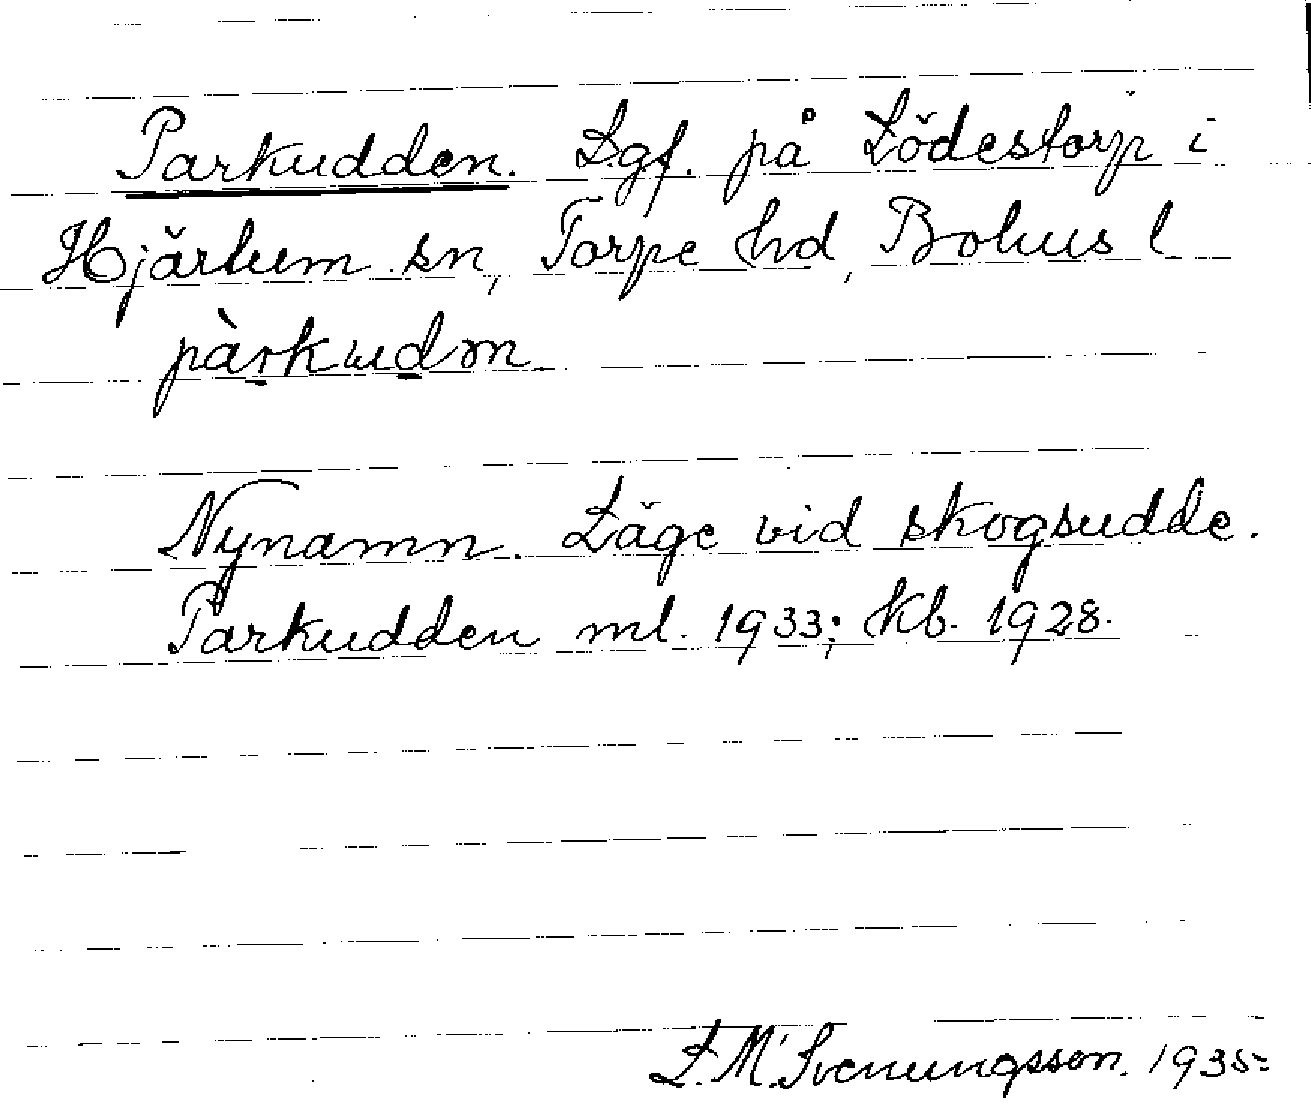 Parkudden. Lgf. på Lödestorp i
Hjärtum sn, Torpe hd, Bohus l
pàrkudn
Nynamn. Läge vid skogsudde.
Parkudden ml. 1933; kb. 1928.
L. M. Svenungsson. 1935